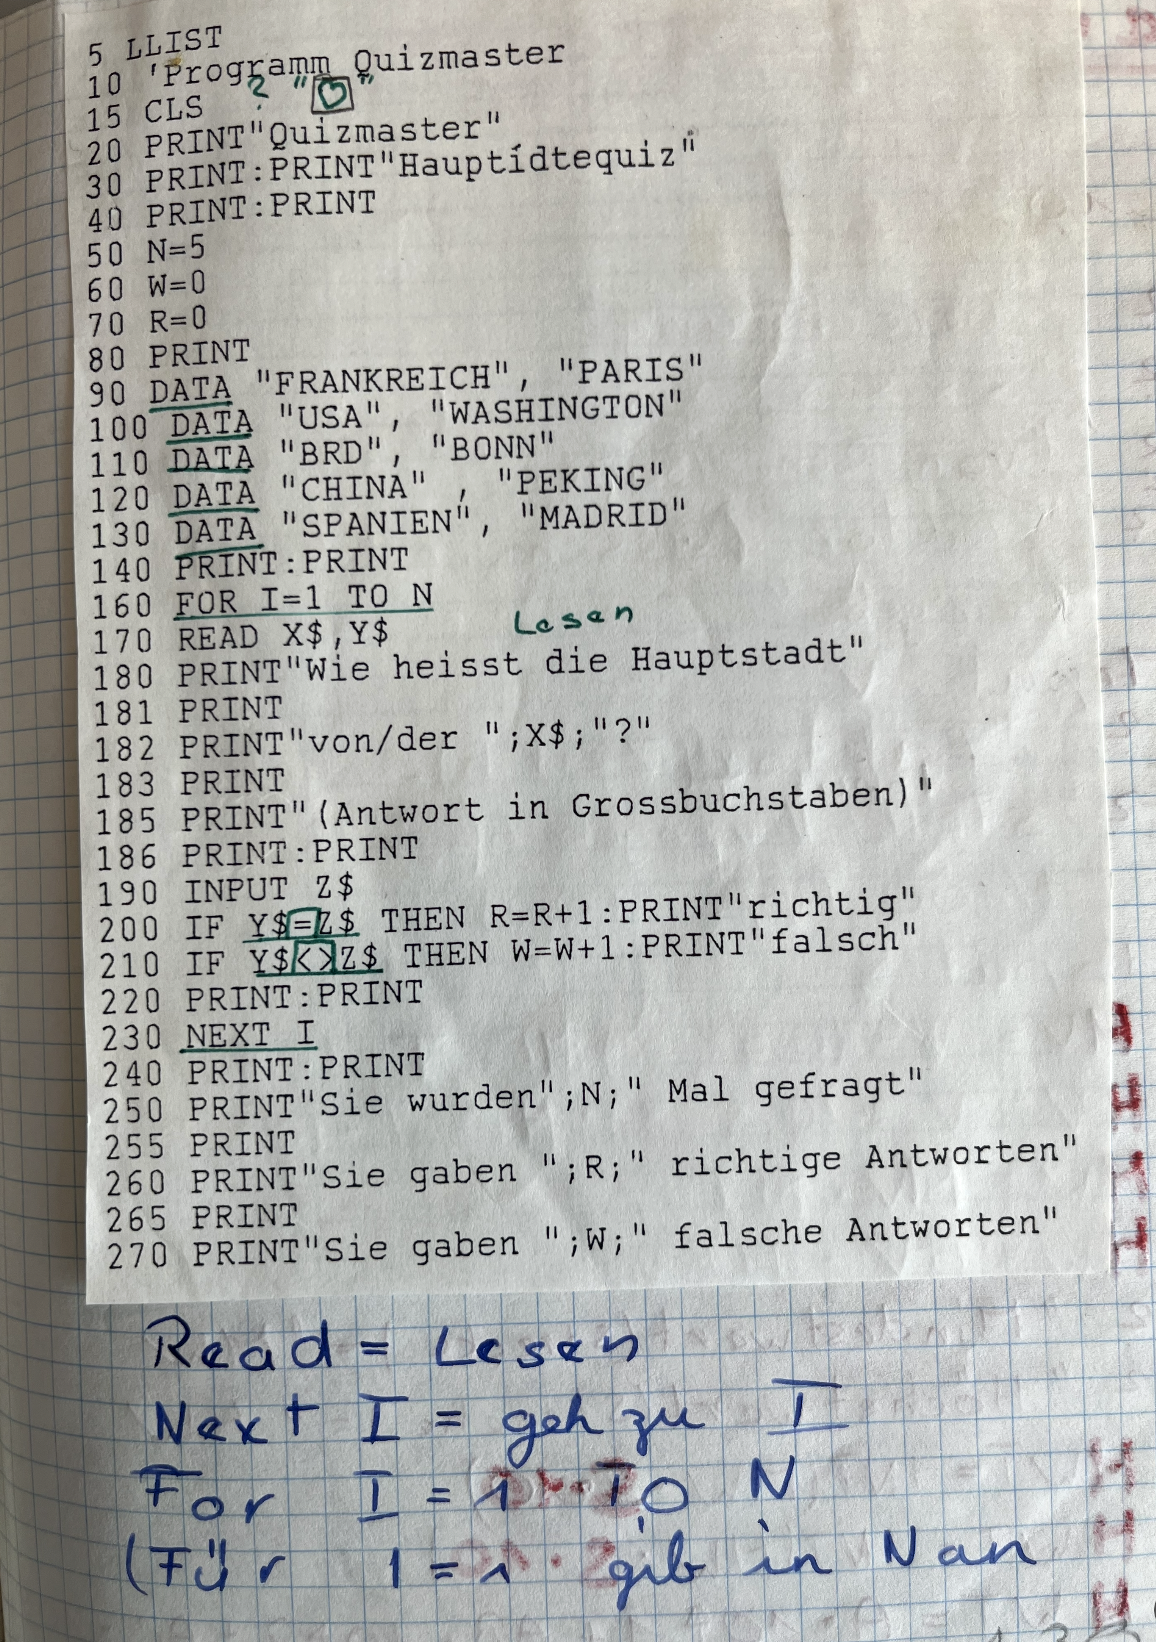 5 LLIST
10 'Programm Quizmaster
15 CLS ? "♡"
20 PRINT"Quizmaster"
30 PRINT:PRINT"Hauptídtequiz"
40 PRINT:PRINT
50 N=5
60 W=0
70 R=0
80 PRINT
90 DATA "FRANKREICH", "PARIS"
100 DATA "USA", "WASHINGTON"
110 DATA "BRD", "BONN"
120 DATA "CHINA" , "PEKING"
130 DATA "SPANIEN", "MADRID"
140 PRINT:PRINT
160 FOR I=1 TO N
170 READ X$,Y$ Lesen
180 PRINT"Wie heisst die Hauptstadt"
181 PRINT
182 PRINT"von/der ";X$;"?"
183 PRINT
185 PRINT"(Antwort in Grossbuchstaben)"
186 PRINT:PRINT
190 INPUT Z$
200 IF Y$=Z$ THEN R=R+1:PRINT"richtig"
210 IF Y$<>Z$ THEN W=W+1:PRINT"falsch"
220 PRINT:PRINT
230 NEXT I
240 PRINT:PRINT
250 PRINT"Sie wurden";N;" Mal gefragt"
255 PRINT
260 PRINT"Sie gaben ";R;" richtige Antworten"
265 PRINT
270 PRINT"Sie gaben ";W;" falsche Antworten"
Read = Lesen
Next I = geh zu I
For I = 1 TO N
(Für 1 = 1 gib in N an